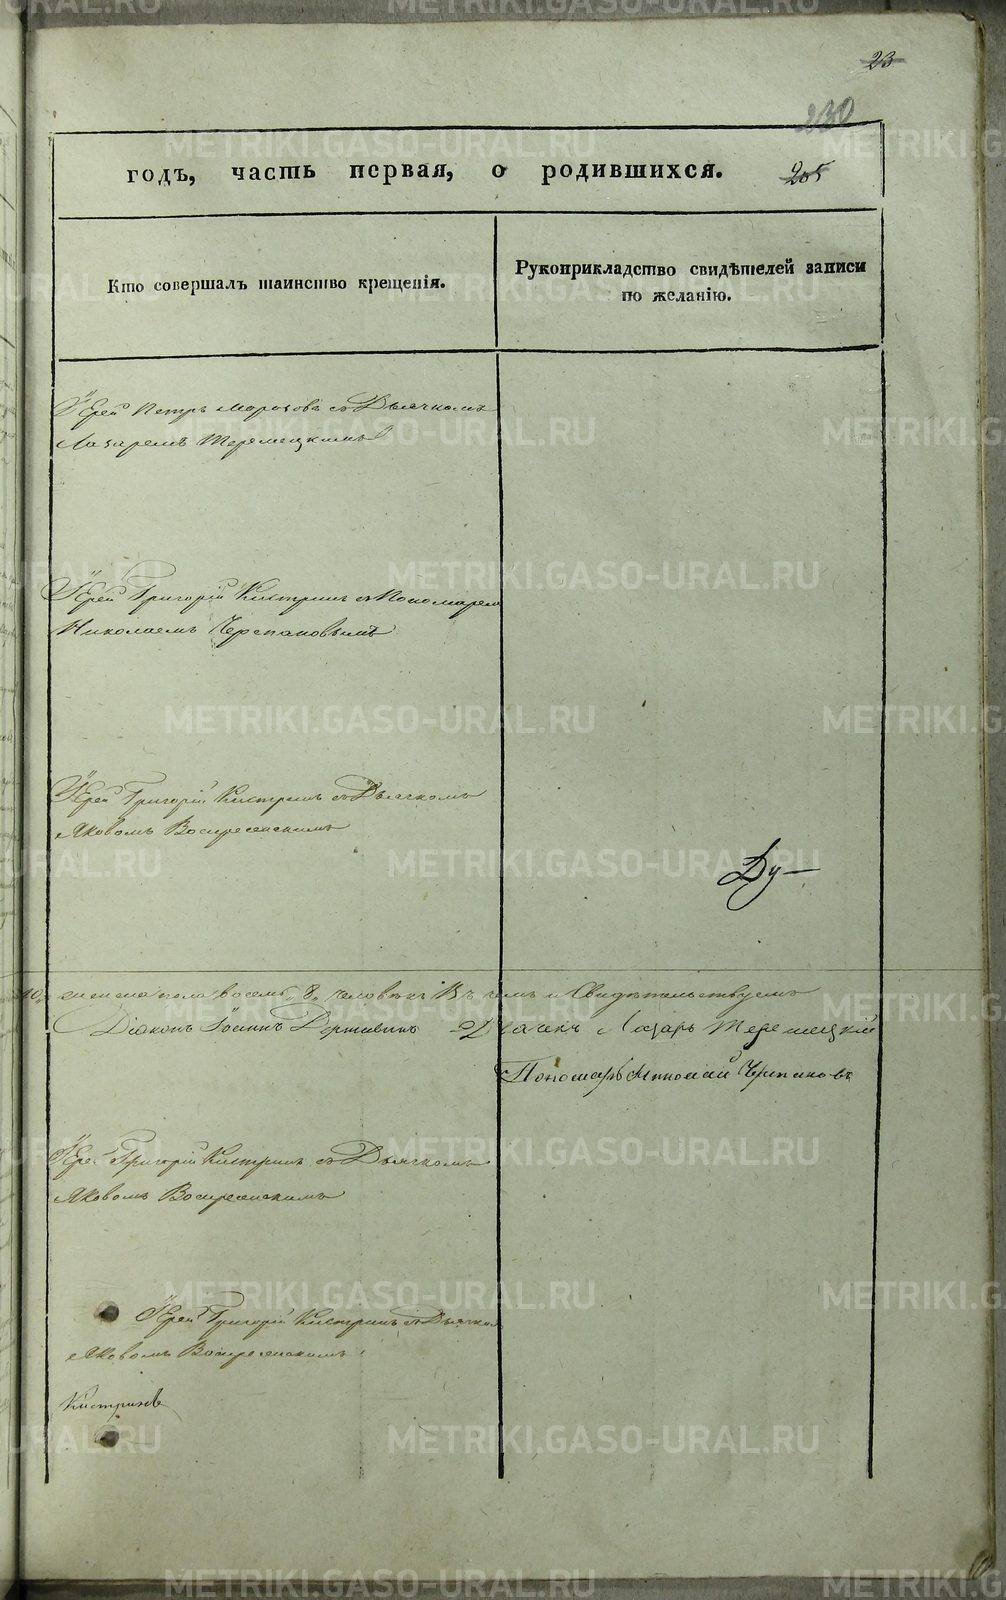 23
230
годъ, часть первая, о родившихся. 205
Кто совершалъ таинство крещенія.
Рукоприкладство свидѣтелей записи
по желанію.
Іерей Петръ Морозовъ съ Дьячкомъ
Лазаремъ Теремецкимъ
Іерей Григорій Кистринъ съ Пономаремъ
Николаемъ Черепановымъ
Іерей Григорій Кистринъ съ Дьячкомъ
Яковомъ Воскресенскимъ
Ду-
10, женска пола восемь „8„ человѣкъ Въ чемъ и свидѣтельствуемъ
Діаконъ Іоаннъ Дьячекъ Лазарь Теремецкій
Пономарь Николай Черепановъ
Іерей Григорій Кистринъ съ Дьячкомъ
Яковомъ Воскресенскимъ
Іерей Григорій Кистринъ съ Дьячко
Яковомъ Воскресенскимъ
METRIKI.GASO-URAL.RU